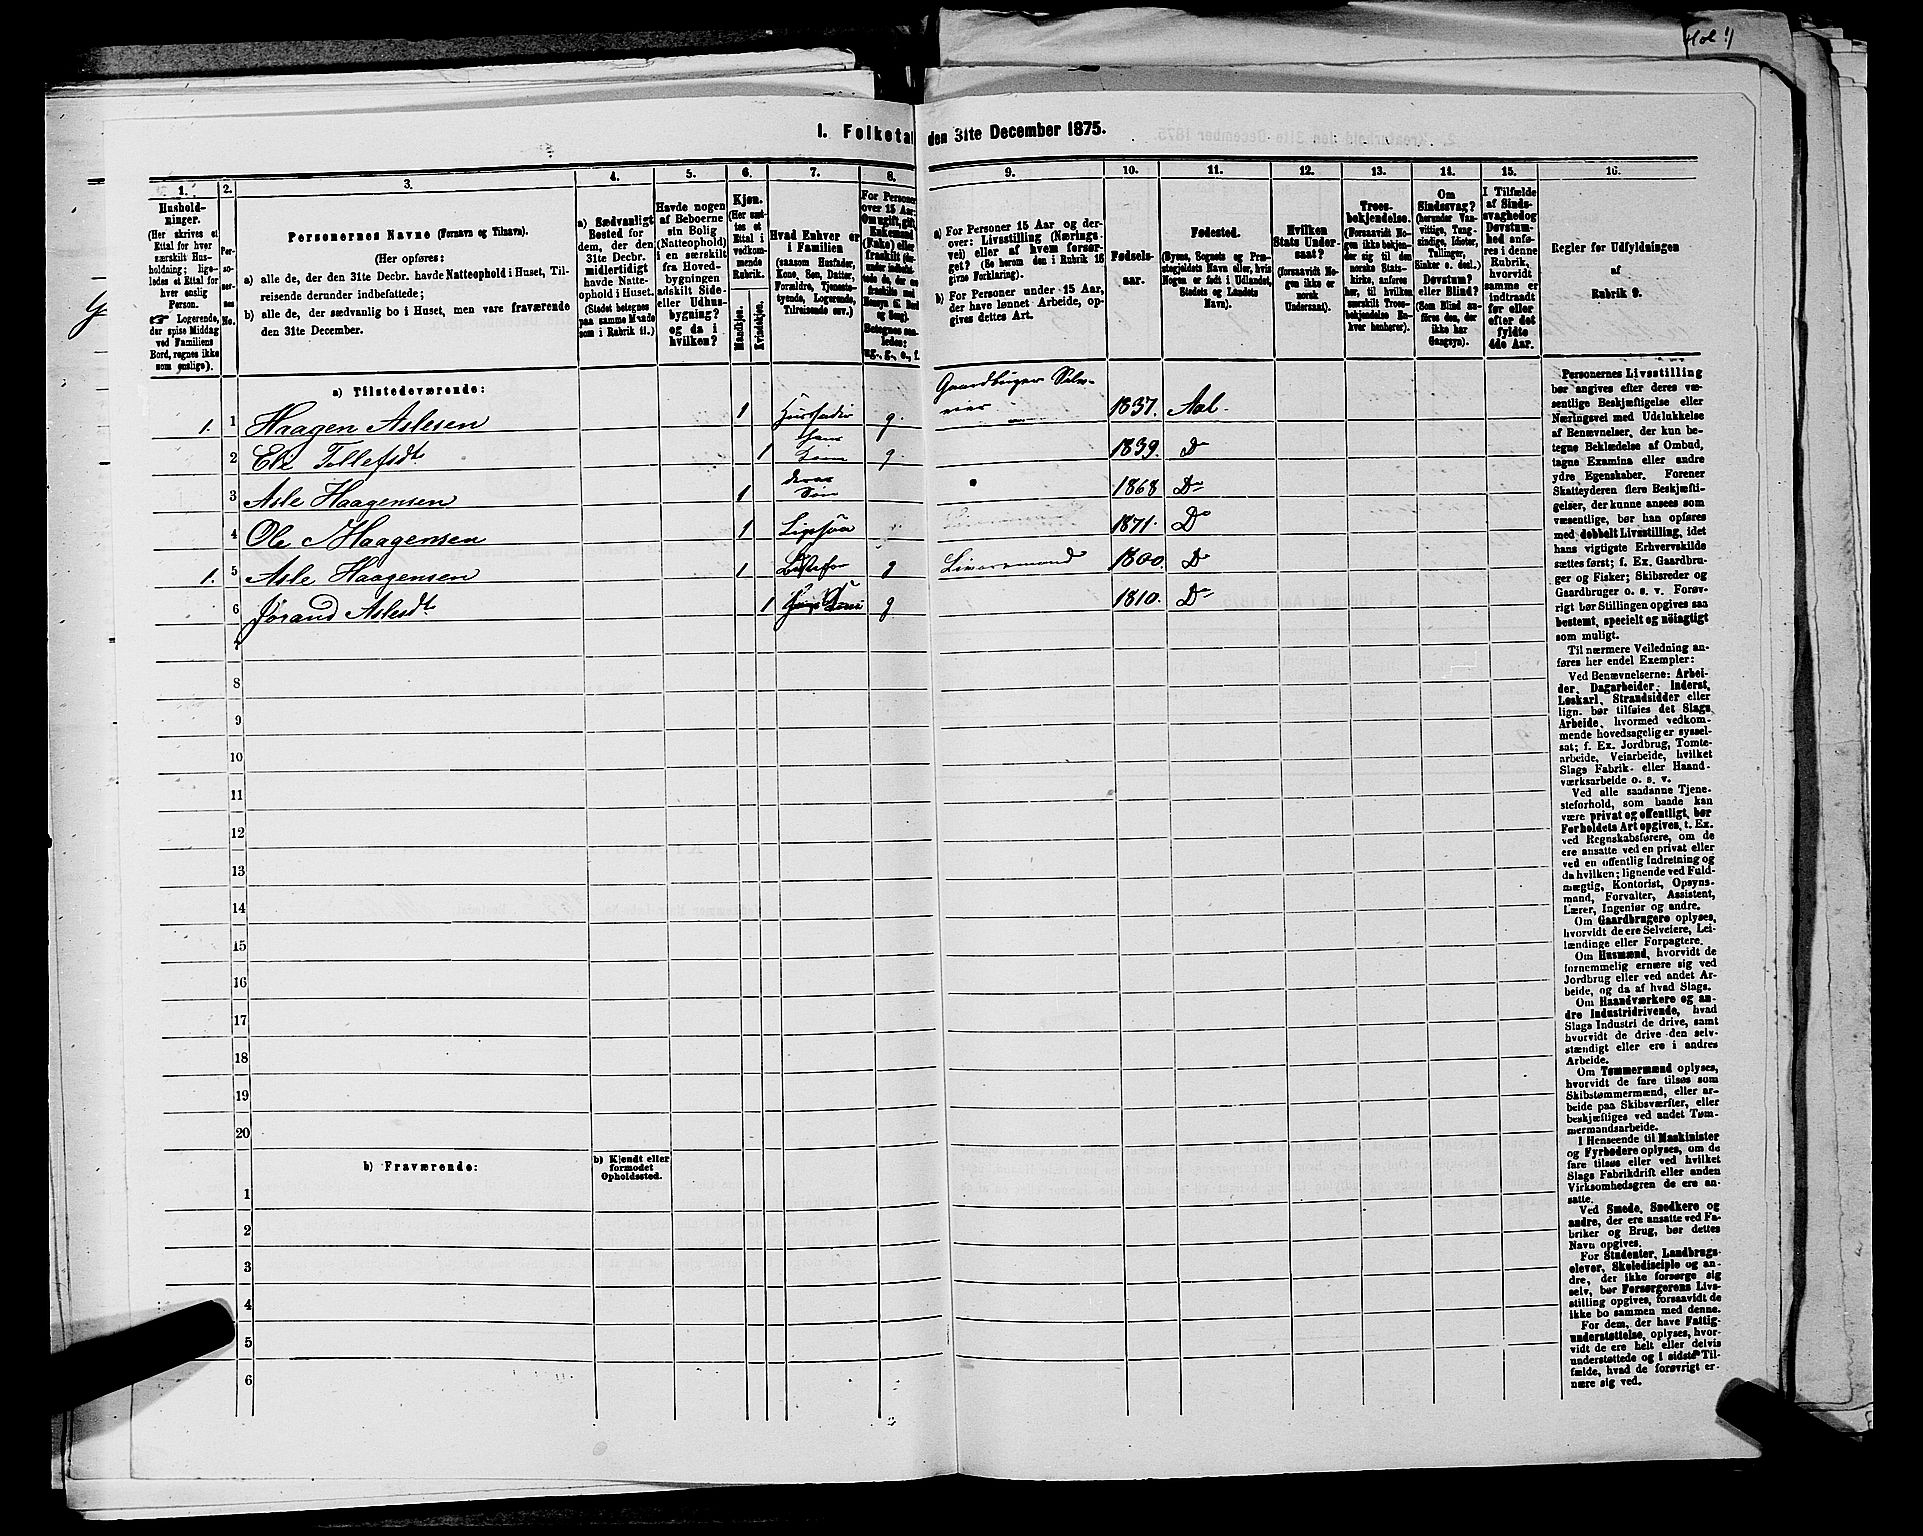 Hol 1)
I. Folketal den 31te December 1875.
1. 2. 3. 4. 5. 6. 7. 8. 9. 10. 11. 12. 13. 14. 15. 16.
Hushold-
ninger.
(Her skrives et
Ettal for hver
særskilt Hus-
holdning; lige-
ledes et Ettal for
hver enslig
Person.
☞ Logerende,
der spise Middag
ved Familiens
Bord, regnes ikke
som enslige).
Per-
so-
ner-
nes
No.
Personernes Navne (Fornavn og Tilnavn).
(Her opføres:
a) alle de, der den 31te Decbr. havde Natteophold i Huset, Til-
reisende derunder indbefattede;
b) alle de, der sædvanlig bo i Huset, men vare fraværende
den 31te December.
a) Sædvanligt
Bosted for
dem, der den
31te Decbr.
midlertidigt
havde Natte-
ophold i Huset.
(Stedet betegnes
paa samme Maade
som i Rubrik 11.)
Havde nogen
af Beboerne
sin Bolig
(Natteophold)
i en særskilt
fra Hoved-
bygningen
adskilt Side-
eller Udhus-
bygning?
og da i
hvilken?
Kjøn.
(Her sæt-
tes et
Ettal i
vedkom-
mende
Rubrik.
Mandkjøn.
Kvindekjøn.
Hvad Enhver er
i Familien
(saasom Husfader,
Kone, Søn, Datter,
Forældre, Tjeneste-
tyende, Logerende,
Tilreisende osv.)
For Personer
over 15 Aar:
Om ugift, gift,
Enkemand
(Enke) eller
fraskilt
Betegnes saa-
ledes:
ug., g., e., f.
a) For Personer 15 Aar og der-
over: Livsstilling (Nærings-
vei) eller af hvem forsør-
get? (Se herom den i Rubrik 16
givne Forklaring).
b) For Personer under 15 Aar,
der have lønnet Arbeide, op-
gives dettes Art.
Fødsels-
aar.
Fødested.
(Byens, Sognets og Præ-
stegjeldets Navn eller, hvis
Nogen er født i Udlandet,
Stedets og Landets
Navn).
Hvilken
Stats Under-
saat?
(forsaavidt No-
gen ikke er
norsk
Undersaat).
Troes-
bekjendelse.
(Forsaavidt No-
gen ikke bekjen-
der sig til den
norske Stats-
kirke, anføres
her, til hvilken
særskilt Troes-
bekjendelse En-
hver henhører).
Om
Sindssvag?
(herunder Van-
vittige, Tung-
sindige, Idioter,
Tullinger,
Sinker o. desl.)
Døvstum?
eller Blind?
(Som Blind an-
føres den, der
ikke har
Gangsyn).
I Tilfælde
af Sinds-
svaghed og
Døvstum-
hed anfø-
res i denne
Rubrik,
hvorvidt
samme er
indtraadt
før eller
efter det
fyldte
4de Aar.
Regler for Udfyldningen
af
Rubrik 9.
a) Tilstedeværende:
1. 1 Haagen Aslesen 1 Husfader g. Gaardbruger Selv-
eier 1837. Aal.
2 Tollefsdt. 1 hans Kone g. 1839. Do
3 Asle Haagensen 1 deres Søn 1868 Do
4 Ole Haagensen 1 1871. Do
1. 5 Asle Haagensen 1 g 1800. Do
6 Jørand Aslesdt. 1 g 1810. Do
7
8
9
10
11
12
13
14
15
16
17
18
19
20
b) Fraværende:
b) Kjendt eller
formodet
Opholdssted.
1
2
3
4
5
6
Personernes Livsstilling
bør angives efter deres væ-
sentlige Beskjæftigelse eller
Næringsvei med Udelukkelse
af Benævnelser, der kun be-
tegne Beklædelse af Ombud,
tagne Examina eller andre
ydre Egenskaber. Forener
Skatteyderen flere Beskjæfti-
gelser, der kunne ansees som
væsentlige, bør han opføres
med dobbelt Livsstilling, idet
hans vigtigste Erhvervskilde
sættes først; f. Ex. Gaardbru-
ger og Fisker; Skibsreder og
Gaardbruger o. s. v. Forøv-
rigt bør Stillingen opgives saa
bestemt, specielt og nöiagtigt
som muligt.
Til nærmere Veiledning an-
føres her endel Exempler:
Ved Benævnelserne: Arbei-
der, Dagarbeider, Inderst,
Løskarl, Strandsidder eller
lign. bør tilføies det Slags
Arbeide, hvormed vedkom-
mende hovedsagelig er syssel-
sat; f. Ex. Jordbrug, Tomte-
arbeide, Veiarbeide, hvilket
Slags Fabrik- eller Haand-
værksarbeide o. s. v.
Ved alle saadanne Tjene-
steforhold, som baade kan
være privat og offentligt, bør
Forholdets Art opgives, t. Ex.
ved Regnskabsførere, om de
ere ansatte ved en privat eller
ved en offentlig Indretning og
da hvilken; lignende ved Fuld-
mægtig, Kontorist, Opsyns-
mand, Forvalter, Assistent,
Lærer, Ingeniør og andre.
Om Gaardbrugere oplyses,
hvorvidt de ere Selveiere, Lei-
lændinge eller Forpagtere.
Om Husmænd, hvorvidt de
fornemmelig ernære sig ved
Jordbrug eller ved andet Ar-
beide, og da af hvad Slags.
Om Haandværkere og an-
dre Industridrivende, hvad
Slags Industri de drive, samt
hvorvidt de drive den selv-
stændigt eller ere i andres
Arbeide.
Om Tømmermænd oplyses,
hvorvidt de fare tilsøs som
Skibstømmermænd, eller ar-
beide paa Skibsværfter, eller
beskjæftiges ved andet Tøm-
mermandsarbeide.
I Henseende til Maskinister
og Fyrbødere oplyses, om de
fare tilsøs eller ved hvilket
Slags Fabrikdrift eller anden
Virksomhedsgren de ere an-
satte.
Ved Smede, Snedkere og
andre, der ere ansatte ved Fa-
briker og Brug, bør dettes
Navn opgives.
For Studenter, Landbrugs-
elever, Skoledisciple og an-
dre, der ikke forsørge sig
selv, bør Forsørgerens Livs-
stilling opgives, forsaavidt de
ikke bo sammen med denne.
For dem, der have Fattig-
understøttelse, oplyses, hvor-
vidt de ere helt eller delvis
understøttede og i sidste Til-
fælde, hvad de forøvrigt er-
nære sig ved.